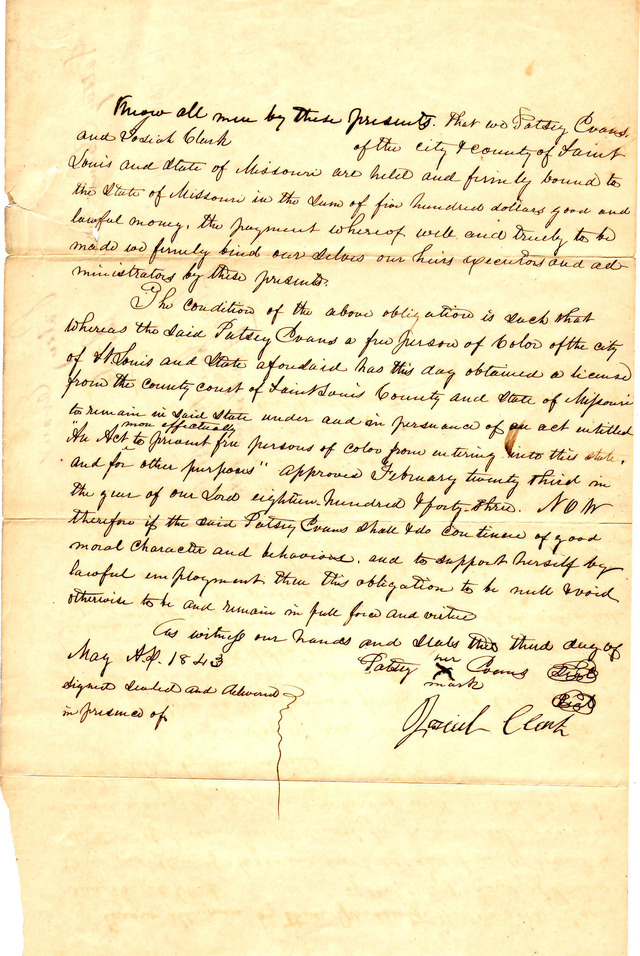 Know all men by these presents. that we Patsey Evans
and Josiah Clark of the city & county of Saint
Louis and State of Missouri are held and firmly bound to
the State of Missouri in the sum of five hundred dollars good and
lawful money, the payment whereof well and truely to be
made we firmly bind our selves our heirs executors and ad-
ministrators by these presents.
The condition of the above obligation is such that
whereas the said Patsey Evans a free person of Color of the city
of St Louis and State aforesaid has this day obtained a license
from the county court of Saint Louis County and State of Missouri
to remain in said state under and in persuance of an act entitled
more effectually
"An Act to prevent free persons of color from entering into this state,
and for other purposes" approved February twenty third in
the year of our Lord eighteen hundred & forty-three. NOW
therefore if the said Patsey Evans shall & do continue of good
moral character and behaviour, and to support herself by
lawful employment then this obligation to be null & void
otherwise to be and remain in full force and virtue
As witness our hands and seals this third day of
May AD. 1843
Patsey her Evans Seal
X
mark
Seal
signed sealed and delivered
in presence of
Josiah Clark